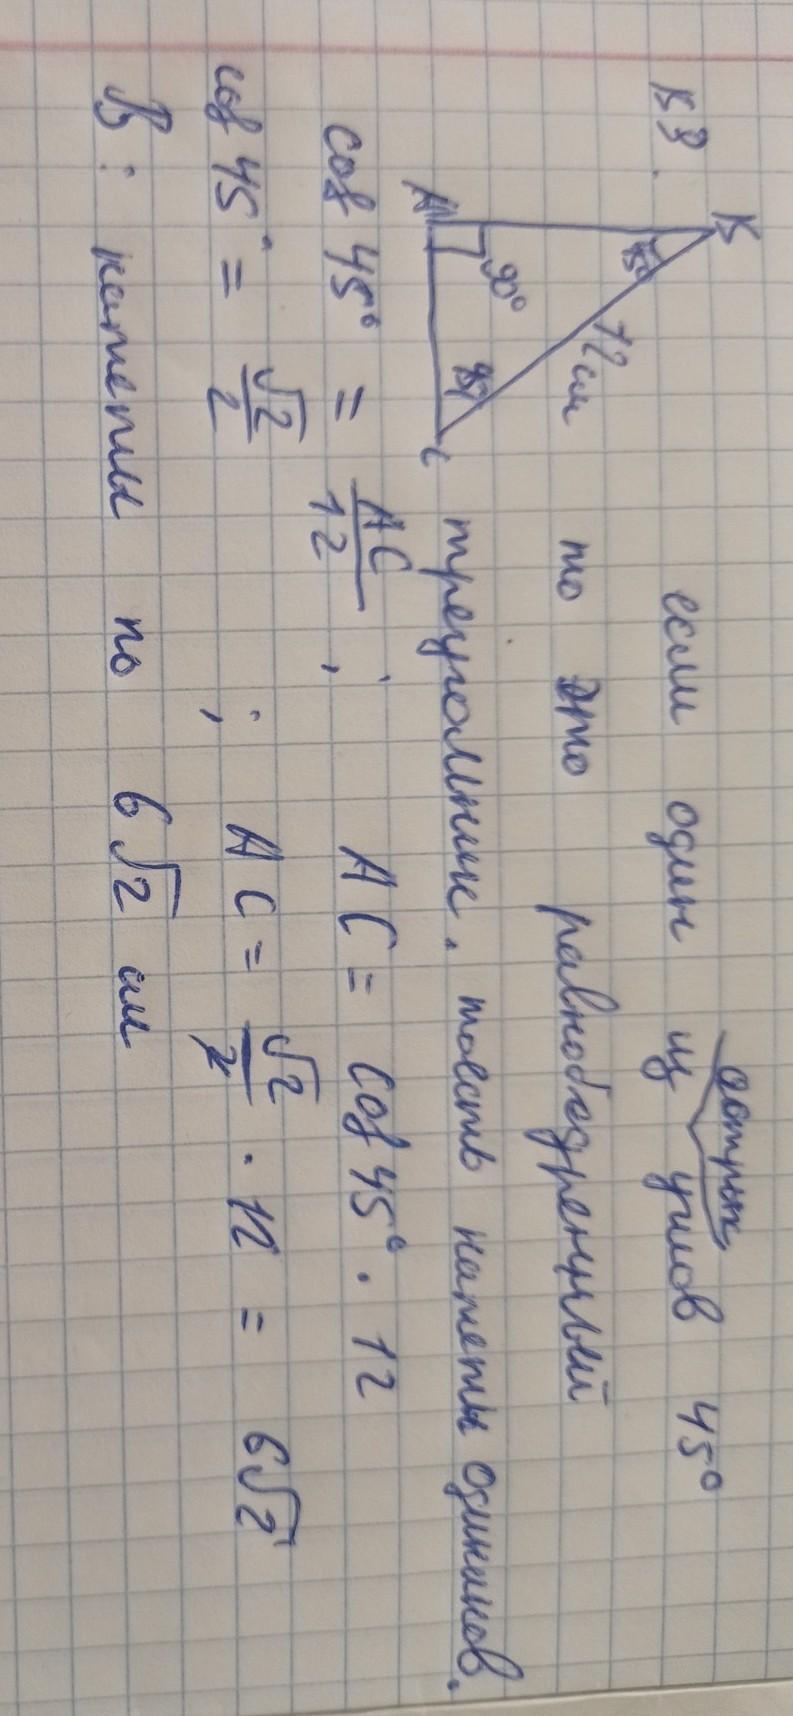 В 3.
В
45°
12 см
90°
А
45°
С
острых
если один из углов 45°
то это равнобедренный
треугольник. тоесть катеты одинаков.
cos 45° = AC/12 ; AC = cos 45° · 12
cos 45° = √2/2 ; AC = √2/2 · 12 = 6√2
В: катеты по 6√2 см